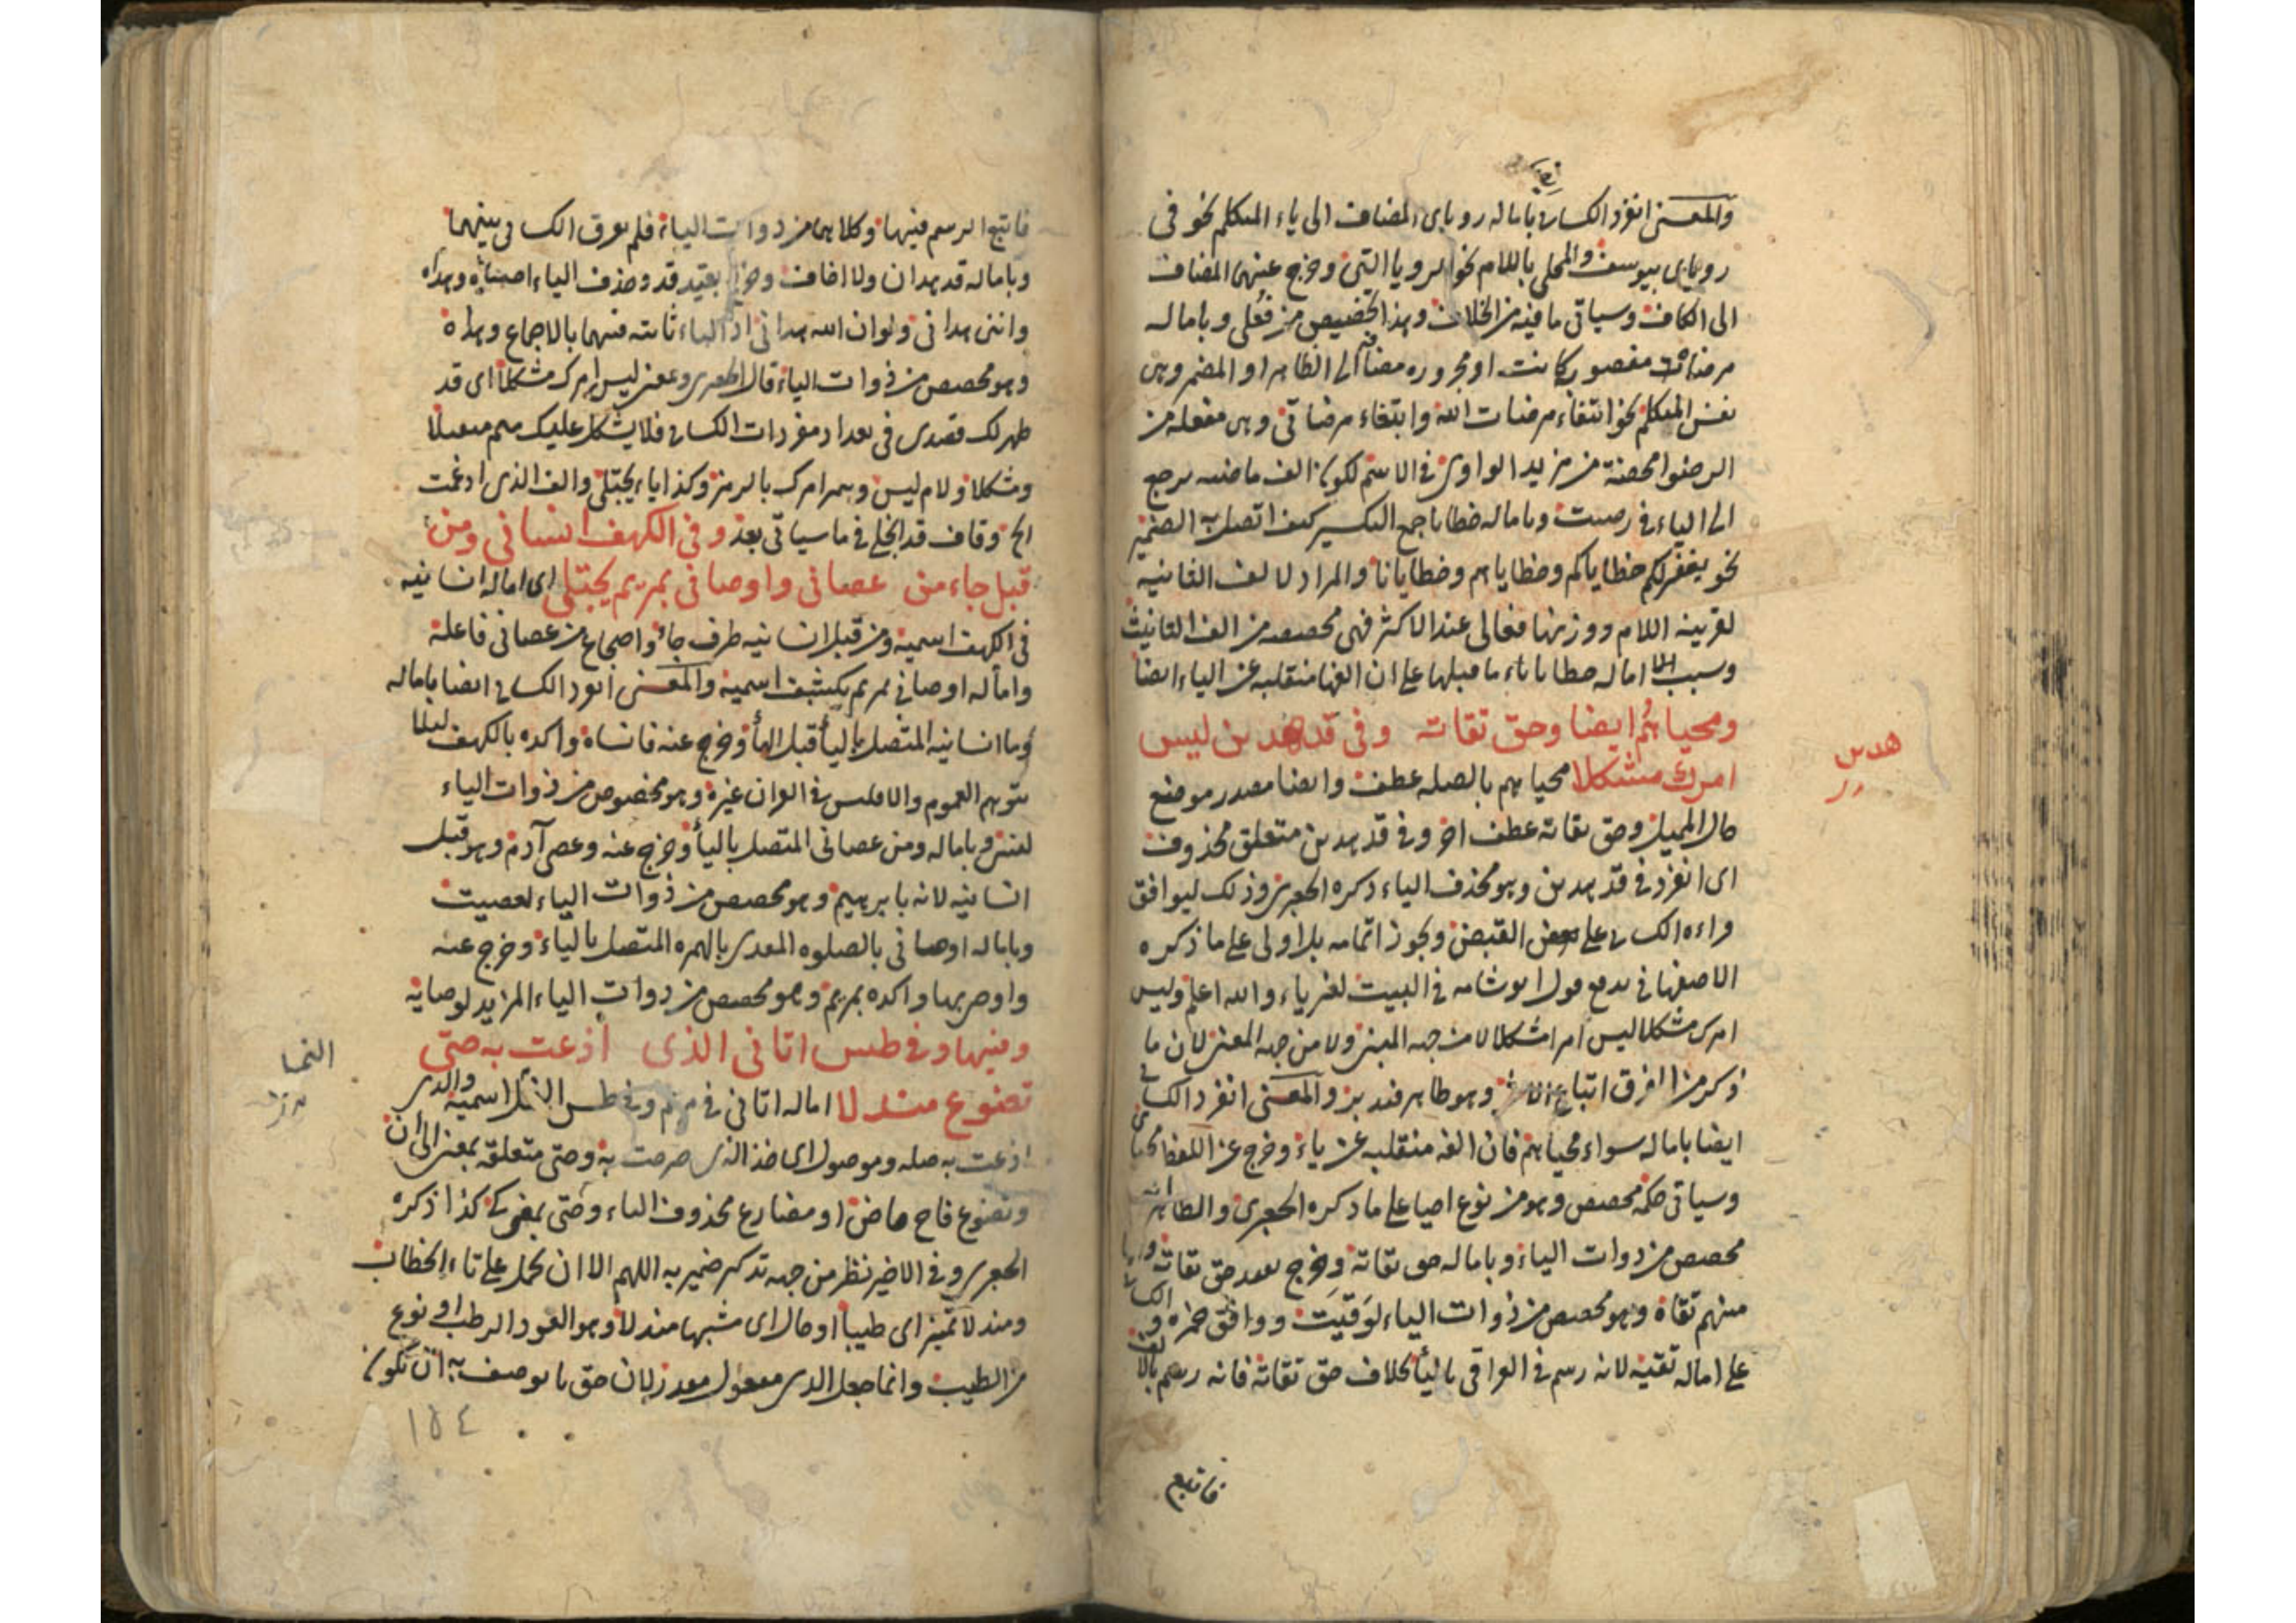 والمعنى انفرد الكسائى بامالة روياى المضاف الى ياء المتكلم نحو فى
روياى بيوسف والمحلى باللام نحو الرويا التى وخرج عنهما المضاف
الى الكاف وسياتى ما فيه من الخلاف وهذا تخصيص من فعلى وبامالة
مرضات مقصورة كانت او مجرورة مضافة الى الظاهر او المضمر وهى
نفس المتكلم نحو ابتغاء مرضات الله وابتغاء مرضاتى وهى مفعلة من
الرضوا محصنة من مزيد الواوى فى الاسم لكون الف ماضيه يرجع
الى الياء فى رضيت وبامالة خطايا جمع التكسير كيف اتصل به الضمير
نحو يغفر لكم خطاياكم وخطاياهم وخطايانا والمراد لالف الثانية
لقرينة اللام ووزنها فعالى عند الاكثر فهى مخصصة من الف التانيث
وسبب امالة خطايا ياء ما قبلها على ان الفها منقلبة عن الياء ايضا
ومحياهم ايضا وحق تقاته وفى قد هدين ليس
هدىن
امرك مشكلا محياهم بالصلة عطف وايضا مصدر موضع
حال المميل وحق تقاته عطف اخر وفى قد هدين متعلق محذوف
اى انفرد فى قد هدين وهو محذف الياء ذكره الجعبرى وذلك ليوافق
راءه الكسائى على بعض القبض ويجوز اتمامه بل اولى على ما ذكره
الاصفهانى يدفع قول ابو شامه فى البيت لغير ياء والله اعلم وليس
امرك مشكلا ليس امرا شكالا من جهة المبنى ولا من جهة المعنى لان ما
ذكر من الفرق اتباع وهو ظاهر فتدبر والمعنى انفرد الكسائى
ايضا بامالة سواء محياهم فان الفه منقلبة عن ياء وخرج عن اللفظ محياى
وسياتى حكمه مخصص وهو من نوع احيا على ما ذكره الجعبرى والظاهر انه
مخصص من ذوات الياء وبامالة حق تقاته وخرج بقيد حق تقاته
منهم تقاة وهو مخصص من ذوات الياء لوقيت ووافق حمزة والكسائى
على امالة تقية لانه رسم فى العراقى بالياء بخلاف حق تقاته فانه رسم بالالف
فاتبع
فاتبع الرسم فيهما وكلاهما من ذوات الياء فلم يفرق الكسائى بينهما
وبامالة قد هدان ولا اضافة وخرج بقيد قد وحذف الياء اجتباه وهداه
واننى هدانى ولو ان الله هدانى اذ الياء ثابتة فيهما بالاجماع وهداه
وهو مخصص من ذوات الياء قال الجعبرى ومعنى ليس امرك مشكلا اى قد
ظهر لك قصدى فى تعداد مفردات الكسائى فلا يشكل عليك ميم ميميلا
وشكلا ولام ليس وهمزامرك بالرمز وكذا ياء يجتلى والف الذى اذعت
الخ وقاف قد انجلى فى ما سياتى بعد وفى الكهف انسانى ومن
قبل جاء من عصانى واوصانى بمريم يجتلى اى امالة انسانيه
فى الكهف اسمية ومن قبل انسانيه ظرف جاء واضجاع من عصانى فاعله
وامالة اوصانى بمريم يكشف اسمية والمعنى انفرد الكسائى ايضا بامالة
وما انسانيه المتصل بالياء قبل الهاء وخرج عنه فانساه واكده بالكهف لئلا
يتوهم العموم والا فليس فى القران غيره وهو مخصوص من ذوات الياء
لننسى وبامالة ومن عصانى المتصل بالياء وخرج عنه وعصى آدم وهو قبل
انسانيه لانه بابرهيم وهو مخصص من ذوات الياء لعصيت
وبامالة اوصانى بالصلوة المعدى بالهمزة المتصل بالياء وخرج عنه
واوصى بها واكده بمريم وهو مخصص من ذوات الياء المزيد لوصايه
وفيها وفى طس اتانى الذى اذعت به حتى
تضوع مندلا امالة اتانى فى مريم وفى طس النمل اسمية والذى
النمل
اذعت به صله وموصول اى خذ الذى صرحت به وحتى متعلقة بمعنى الى ان
وتضوع فاح ماض او مضارع محذوف التاء وحتى بمعنى كى كذا ذكره
الجعبرى وفى الاخير نظر من جهة تذكير ضمير به اللهم الا ان يحمل على تاء الخطاب
ومندلا تميز اى طيبا او حال اى مشبها مندلا وهو العود الرطب او نوع
من الطيب وانما جعل الذى مفعول مقدر لان حق ما يوصف به ان يكون
١٥٤